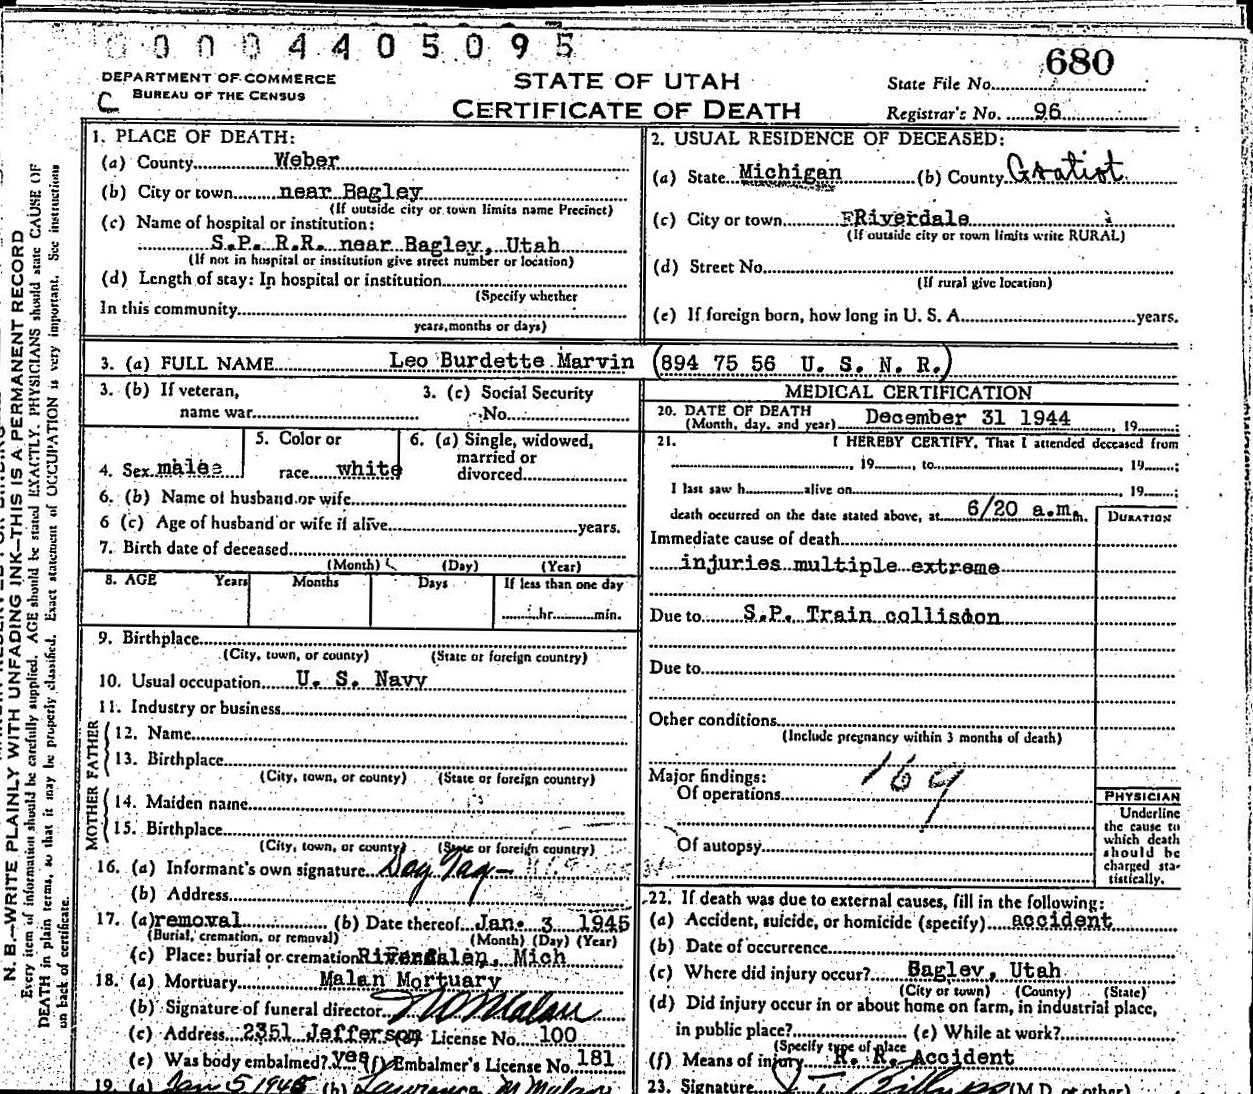 0 0 0 0 4 4 0 5 0 9 5
680
DEPARTMENT OF COMMERCE
BUREAU OF THE CENSUS
C
STATE OF UTAH
CERTIFICATE OF DEATH
State File No.
Registrar's No. 96
N. B.—WRITE PLAINLY WITH UNFADING INK—THIS IS A PERMANENT RECORD
Every item of information should be carefully supplied. AGE should be stated EXACTLY. PHYSICIANS should state CAUSE OF
DEATH in plain terms, so that it may be properly classified. Exact statement of OCCUPATION is very important. See instructions
on back of certificate.
1. PLACE OF DEATH:
(a) County Weber
(b) City or town near Bagley
(If outside city or town limits name Precinct)
(c) Name of hospital or institution:
S.P. R.R. near Bagley, Utah
(If not in hospital or institution give street number or location)
(d) Length of stay: In hospital or institution
(Specify whether
In this community
years, months or days)
2. USUAL RESIDENCE OF DECEASED:
(a) State Michigan (b) County Gratiot
(c) City or town Riverdale
(If outside city or town limits write RURAL)
(d) Street No.
(If rural give location)
(e) If foreign born, how long in U. S. A. years.
3. (a) FULL NAME Leo Burdette Marvin (894 75 56 U. S. N. R.)
3. (b) If veteran,
name war
3. (c) Social Security
No.
4. Sex male
5. Color or
race white
6. (a) Single, widowed,
married or
divorced
6. (b) Name of husband or wife
6 (c) Age of husband or wife if alive years.
7. Birth date of deceased
(Month) (Day) (Year)
8. AGE Years Months Days If less than one day
hr. min.
9. Birthplace
(City, town, or county) (State or foreign country)
10. Usual occupation U. S. Navy
11. Industry or business
FATHER
12. Name
13. Birthplace
(City, town, or county) (State or foreign country)
MOTHER
14. Maiden name
15. Birthplace
(City, town, or county) (State or foreign country)
16. (a) Informant's own signature Dog Tag—
(b) Address
17. (a) removal (b) Date thereof Jan. 3 1945
(Burial, cremation, or removal) (Month) (Day) (Year)
(c) Place: burial or cremation Mich
18. (a) Mortuary Malan Mortuary
(b) Signature of funeral director Malan
(c) Address 2351 Jefferson License No. 100
(e) Was body embalmed? yes (f) Embalmer's License No. 181
19. (a) Jan 5, 1945 (b) Lawrence M Malan
MEDICAL CERTIFICATION
20. DATE OF DEATH
(Month, day, and year) December 31 1944, 19 ;
21. I HEREBY CERTIFY, That I attended deceased from
, 19 , to , 19 ;
I last saw h alive on , 19 ;
death occurred on the date stated above, at 6/20 a.m. m.
DURATION
Immediate cause of death
injuries multiple extreme
Due to S.P. Train collision
Due to
Other conditions
(Include pregnancy within 3 months of death)
Major findings:
Of operations
169
Of autopsy
PHYSICIAN
Underline
the cause to
which death
should be
charged sta-
tistically.
22. If death was due to external causes, fill in the following:
(a) Accident, suicide, or homicide (specify) accident
(b) Date of occurrence
(c) Where did injury occur? Bagley, Utah
(City or town) (County) (State)
(d) Did injury occur in or about home on farm, in industrial place,
in public place? (e) While at work?
(Specify type of place
(f) Means of injury R. R. Accident
23. Signature (M.D. or other)